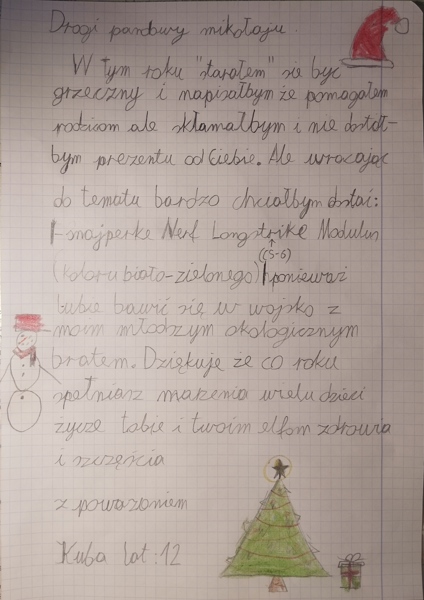 Drogi panbwy mikołaju.
W tym roku "starałem" sie być
grzeczny i napisałbym że pomagałem
rodzicom ale skłamałbym i nie dostał-
bym prezentu od Ciebie. Ale wracając
do tematu bardzo chciałbym dostać:
1-snajperke Nerf Longstrike Modulus
(CS-6)
(koloru biało-zielonego) ponieważ
lubie bawić się w wojsko z
moim młodszym okologicznym
bratem. Dziękuje że co roku
spełniasz marzenia wielu dzieci
życze tobie i twoim elfom zdrowia
i szczęścia
z poważaniem
Kuba lat:12